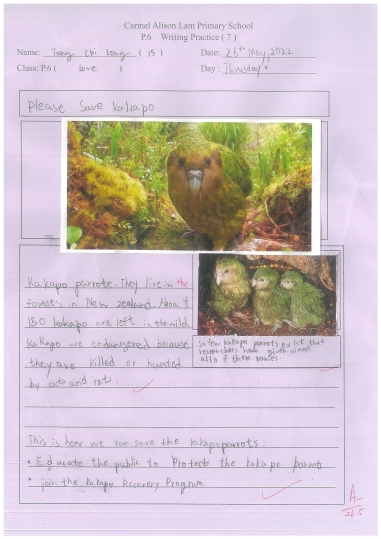 Carmel Alison Lam Primary School
P.6 Writing Practice ( 7 )
Name: Tang Chi Long ( 15 ) Date: 26th May, 2022
Class: P.6 ( love ) Day : Thursday
Please Save kakapo
Kakapo parrots. They live in the
forests in New Zealand. About
150 kakapo are left in the wild.
KaKapo are endangered because
they are killed or hunted
by cats and rats.
So few kakapo parrots exist that
researchers have given almost
all of them names.
This is how we can save the kakapo parrots:
• Educate the public to Protect the kakapo parrots
• join the kakapo Recovery Program.
A-
26.5